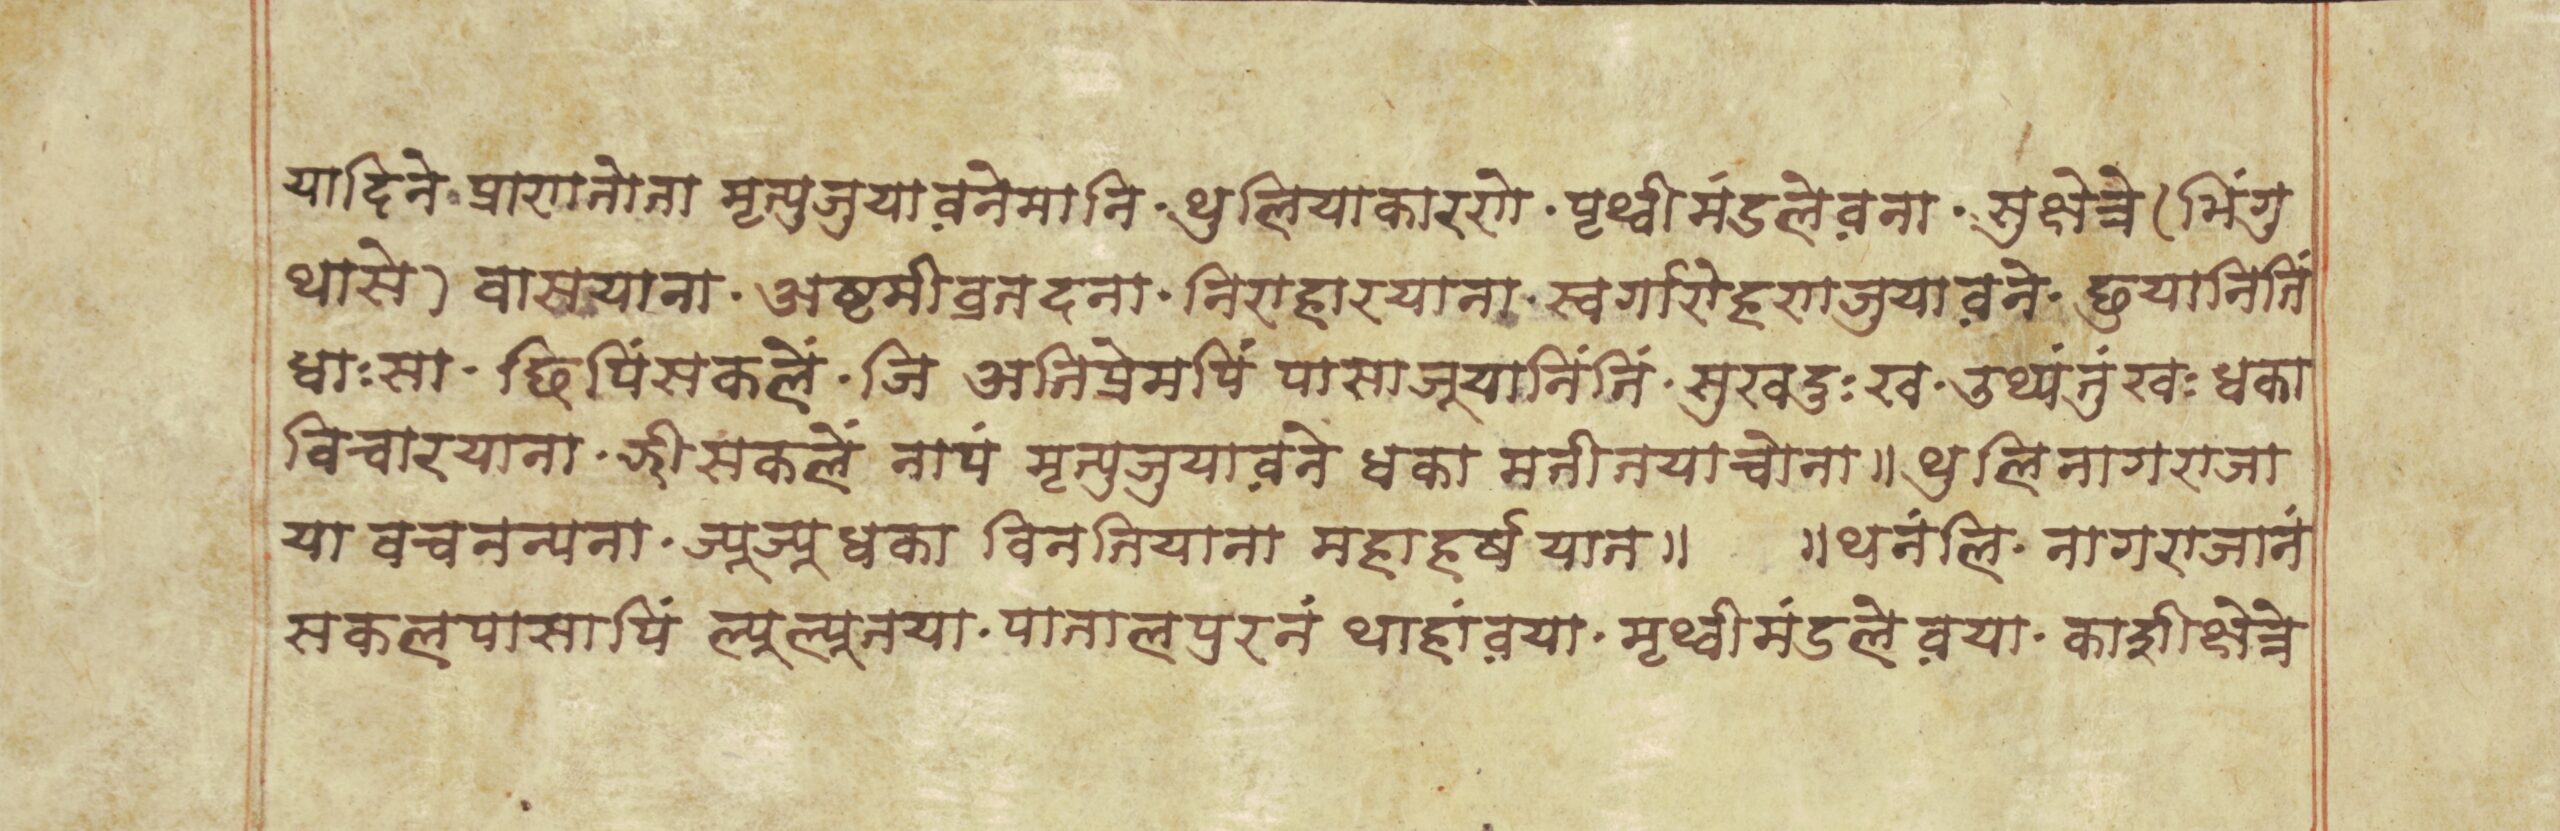 यादिने· प्राणतोता मृत्युजुयाव़नेमानि· थुलियाकारणे· पृथ्वीमंडलेव़ना· सुक्षेत्रे (भिंगु
थासे) वासयाना· अष्टमीव्रतदना· निराहारयाना· स्वर्गारोहणजुयाव़ने· छुयानितिं
धाःसा· छिपिंसकलें· जि अतिप्रेमपिं पासाजूयानिंतिं· सुखदुःख· उथ्यंतुंखः धका
विचारयाना· झीसकलें नापं मृत्युजुयाव़ने धका मतीतयाचोना॥ थुलिनागराजा
या वचनन्यना· ज्यूज्यूधका विनतियाना महाहर्षयात॥ ॥थनंलि· नागराजानं
सकलपासापिं ल्यूल्यूतया· पातालपुरनं थाहांव़या· मृथ्वीमंडलेव़या· काशीक्षेत्रे